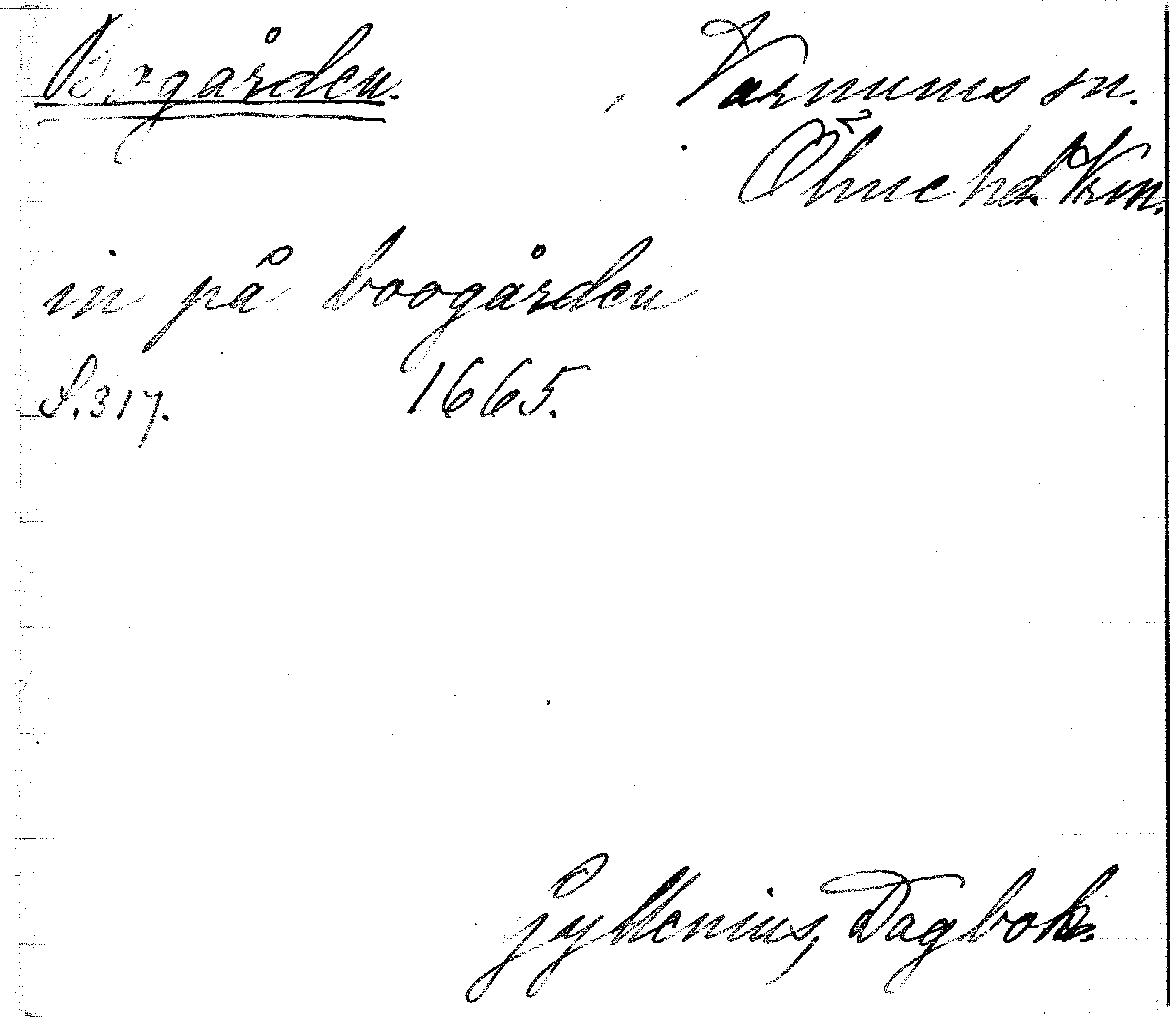 Bogården. Varnums sn.
Ölme hd. Vrm.
in på boogården
S.317. 1665.
Gyllenius, Dagbok.